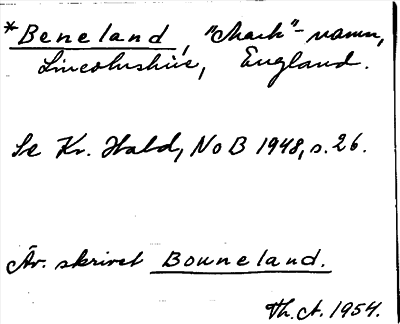 *Beneland, "Mark"-namn,
Lincolnshire, England.
Se Kr. Hald, NoB 1948, s. 26.
Äv. skrivet Bouneland.
Th. A. 1954.